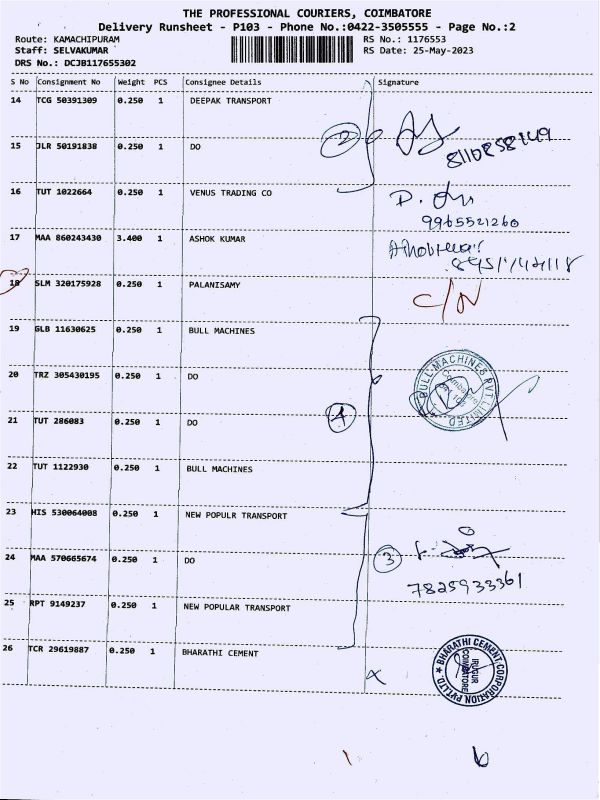 THE PROFESSIONAL COURIERS, COIMBATORE
Delivery Runsheet - P103 - Phone No.:0422-3505555 - Page No.:2
Route: KAMACHIPURAM
RS No.: 1176553
Staff: SELVAKUMAR
RS Date: 25-May-2023
DRS No.: DCJB117655302
S No Consignment No Weight PCS Consignee Details Signature
14 TCG 50391309 0.250 1 DEEPAK TRANSPORT
2
15 JLR 50191838 0.250 1 DO
16 TUT 1022664 0.250 1 VENUS TRADING CO
9965521260
17 MAA 860243430 3.400 1 ASHOK KUMAR
18 SLM 320175928 0.250 1 PALANISAMY
C/N
19 GLB 11630625 0.250 1 BULL MACHINES
20 TRZ 305430195 0.250 1 DO
BULL MACHINES PVT LIMITED
21 TUT 286083 0.250 1 DO
4
22 TUT 1122930 0.250 1 BULL MACHINES
23 HIS 530064008 0.250 1 NEW POPULR TRANSPORT
24 MAA 570665674 0.250 1 DO
3
7825933361
25 RPT 9149237 0.250 1 NEW POPULAR TRANSPORT
26 TCR 29619887 0.250 1 BHARATHI CEMENT
BHARATHI CEMENT CORPORATION PVT.LTD.
IRUGUR
COIMBATORE